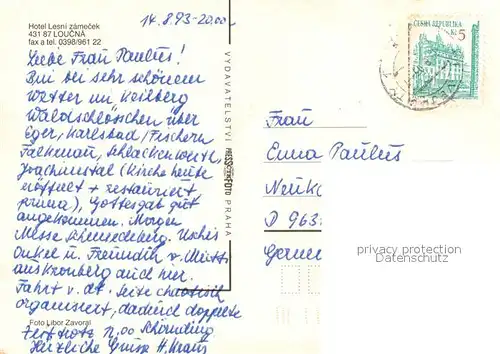 Hotel Lesní zámeček
431 87 LOUČNÁ
fax a tel. 0398/961 22
14.8.93-20.00
Liebe Frau Paulus!
Bin bei sehr schönem
Wetter im Keilberg
Waldschlösschen über
Eger, Karlsbad/Fischern
Falkenau, Schlackenwerte,
Joachimstal (Kirche heute
eröffnet + restauriert
prima), Gottesgab gut
angekommen. Morgen
Messe Schmiedeberg.
Onkel u. Freundin v.
aus Kronberg auch hier.
Fahrt v. dt. Seite chaotisch
organisiert, dadurch doppelte
Herzliche Grüsse H. Kraus
Foto Libor Zavoral
VYDAVATELSTVÍ PRESSFOTO PRAHA
ČESKÁ REPUBLIKA
Kč 5
Frau
Emma Paulus
Neuk
D 963
German
privacy protection
Datenschutz